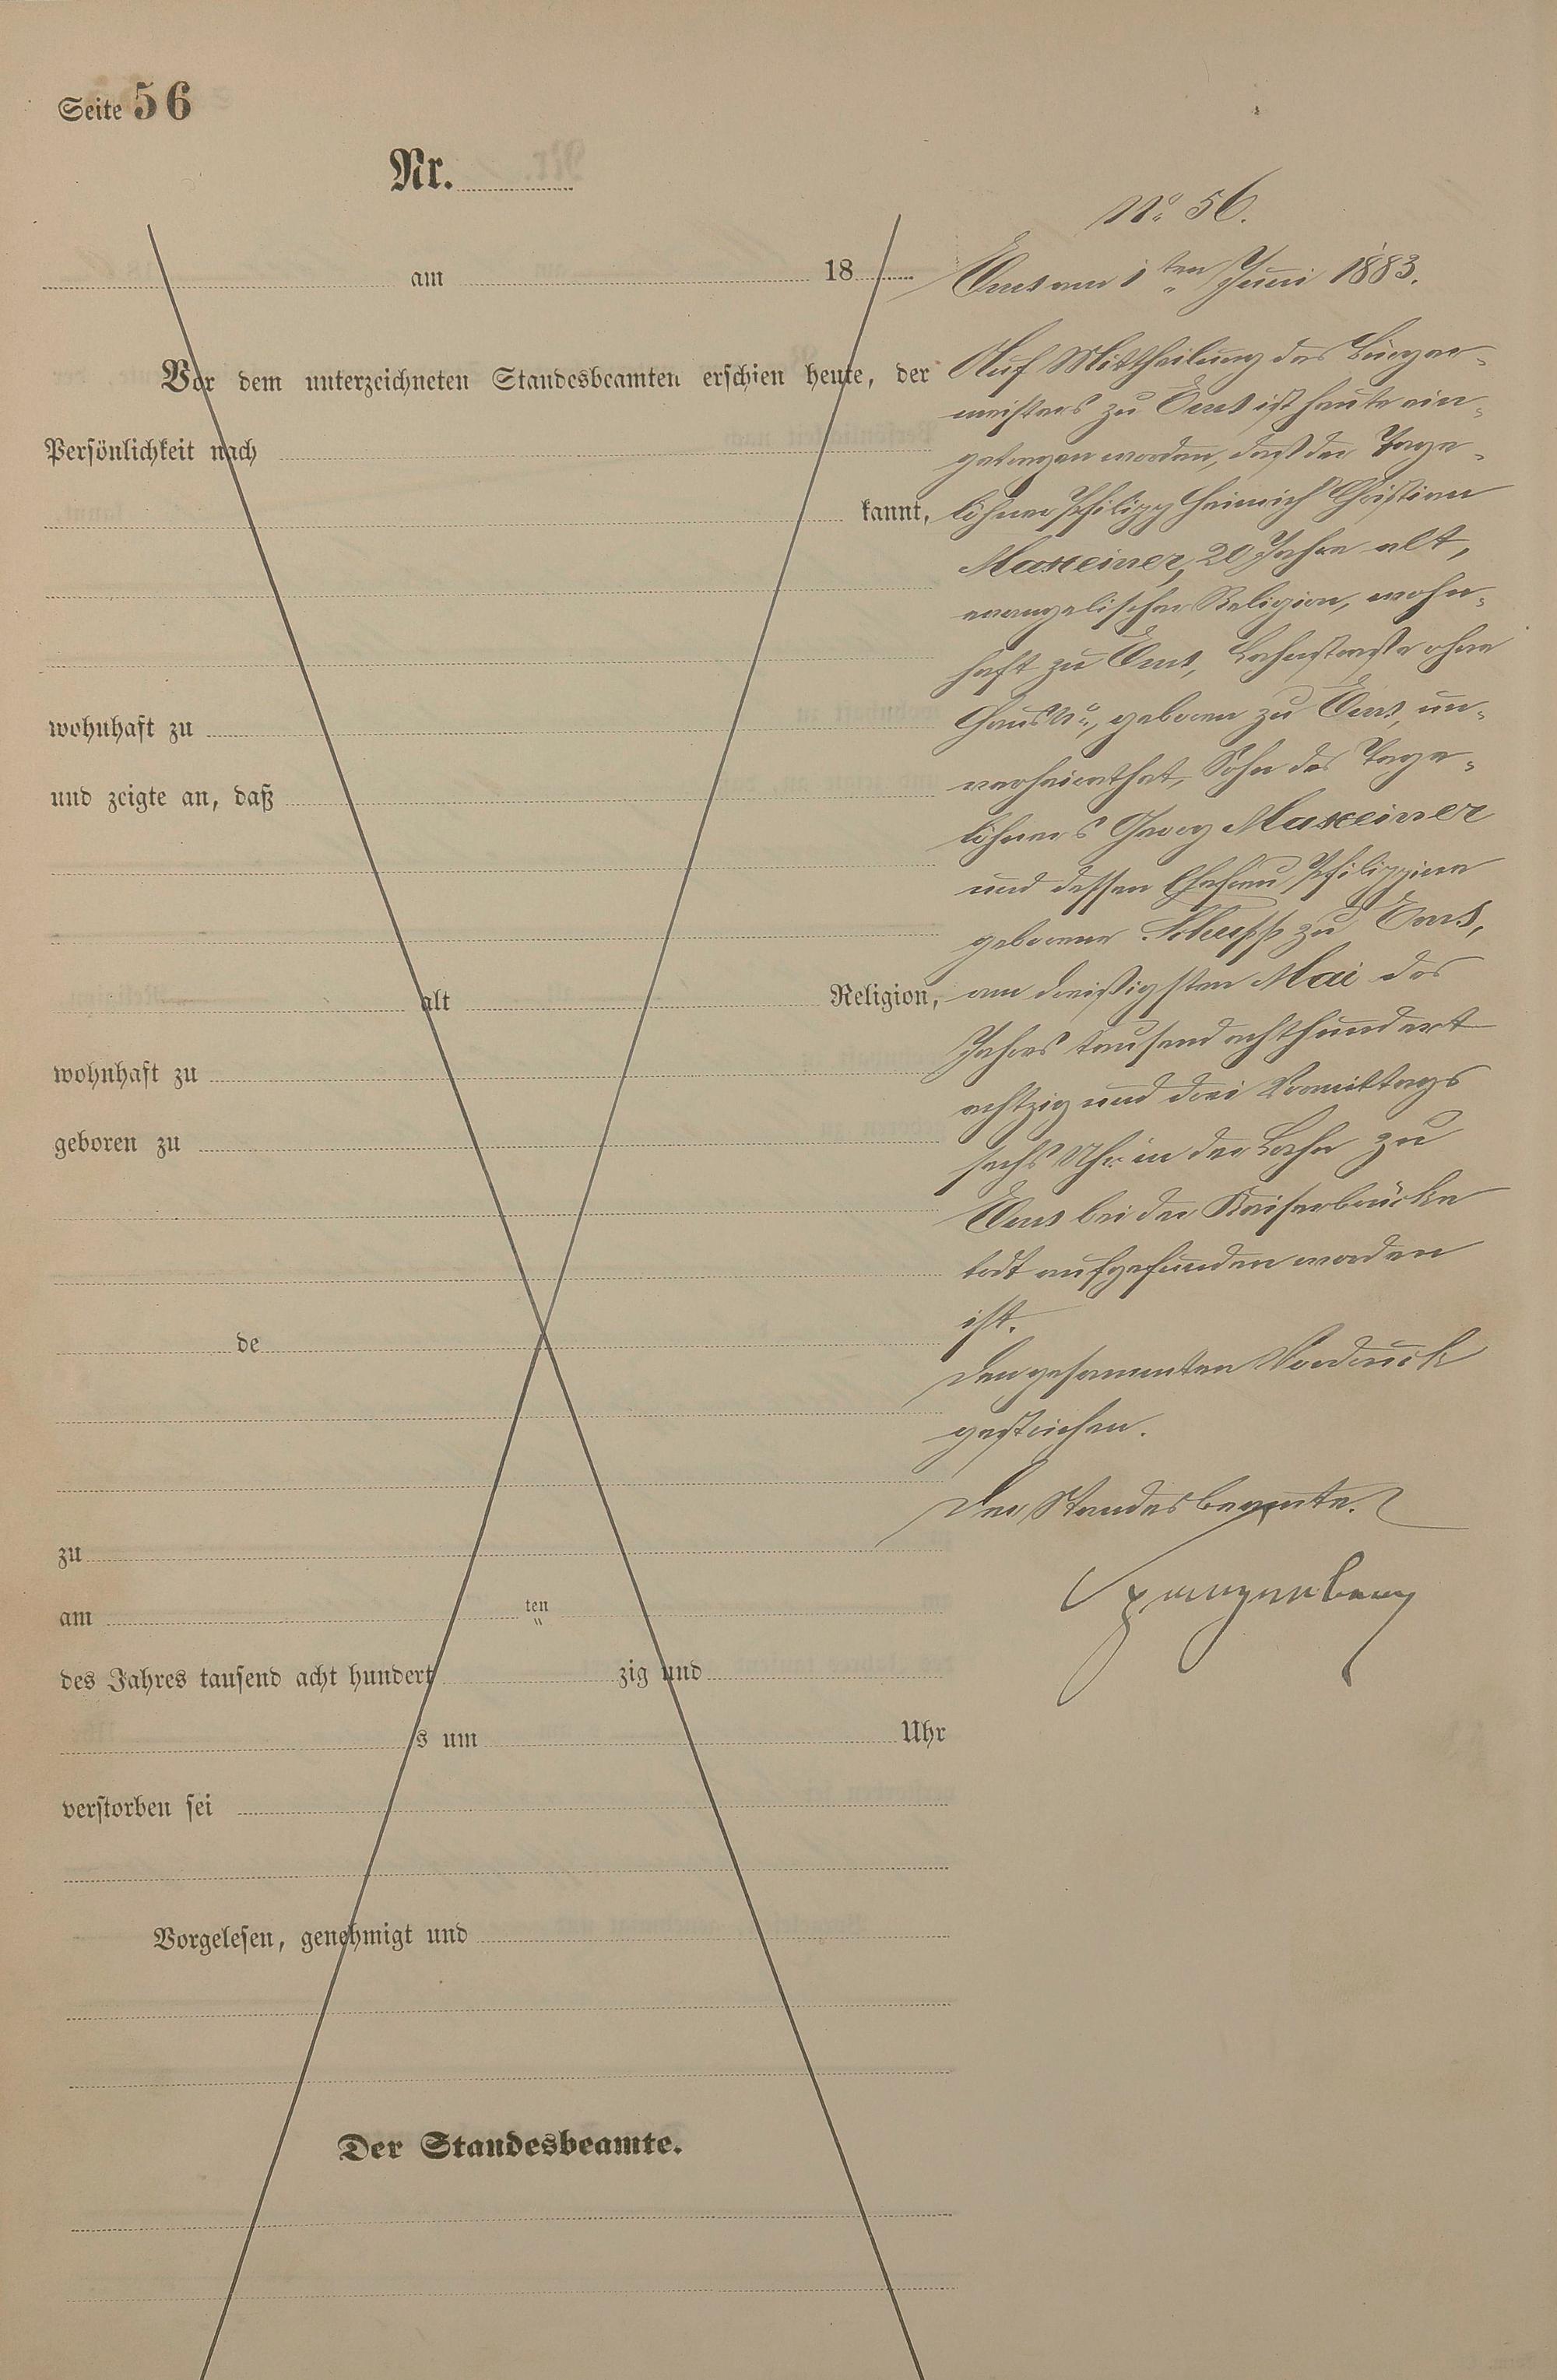 Seite 56
Nr.
am 18
Vor dem unterzeichneten Standesbeamten erschien heute, der
Persönlichkeit nach
kannt,
wohnhaft zu
und zeigte an, daß
alt Religion,
wohnhaft zu
geboren zu
de
zu
am ten
des Jahres tausend acht hundert zig und
s um Uhr
verstorben sei
Vorgelesen, genehmigt und
Der Standesbeamte.
No. 56.
Ems am 1ten Juni 1883.
Auf Mittheilung des Bürger-
meisters zu Ems ist heute ein-
getragen worden, daß der Tage-
löhner Philipp Heinrich Christian
Maxeiner, 20 Jahre alt,
evangelischer Religion, wohn-
haft zu Ems, Lahnstraße ohne
Haus No., geboren zu Ems, un-
verheirathet, Sohn des Tage-
löhners Georg Maxeiner
und dessen Ehefrau Philippine
geborene Schupp zu Ems,
am dreißigsten Mai des
Jahres tausend achthundert
achtzig und drei Vormittags
sechs Uhr in der Lahn zu
Ems bei der Kaiserbrücke
todt aufgefunden worden
ist.
Den gesammten Vordruck
gestrichen.
Der Standesbeamte.
Spangenberg